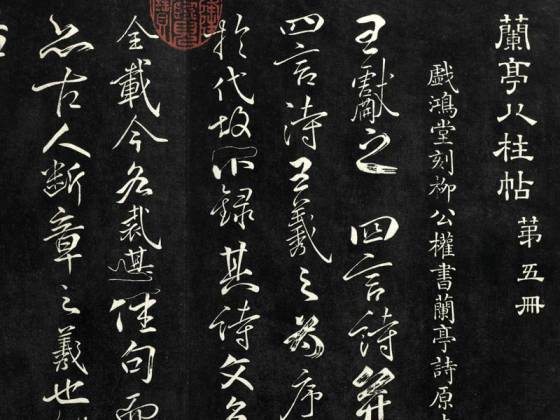 蘭亭八柱帖 第五冊
戲鴻堂刻柳公權書蘭亭詩原
王獻之四言詩并
四言詩王羲之為序
於代故不錄其詩文多
全載今各裁其佳句而
亦古人斷章之義也